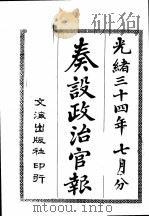 光緒三十四年 七月分
奏設政治官報
文海出版社印行